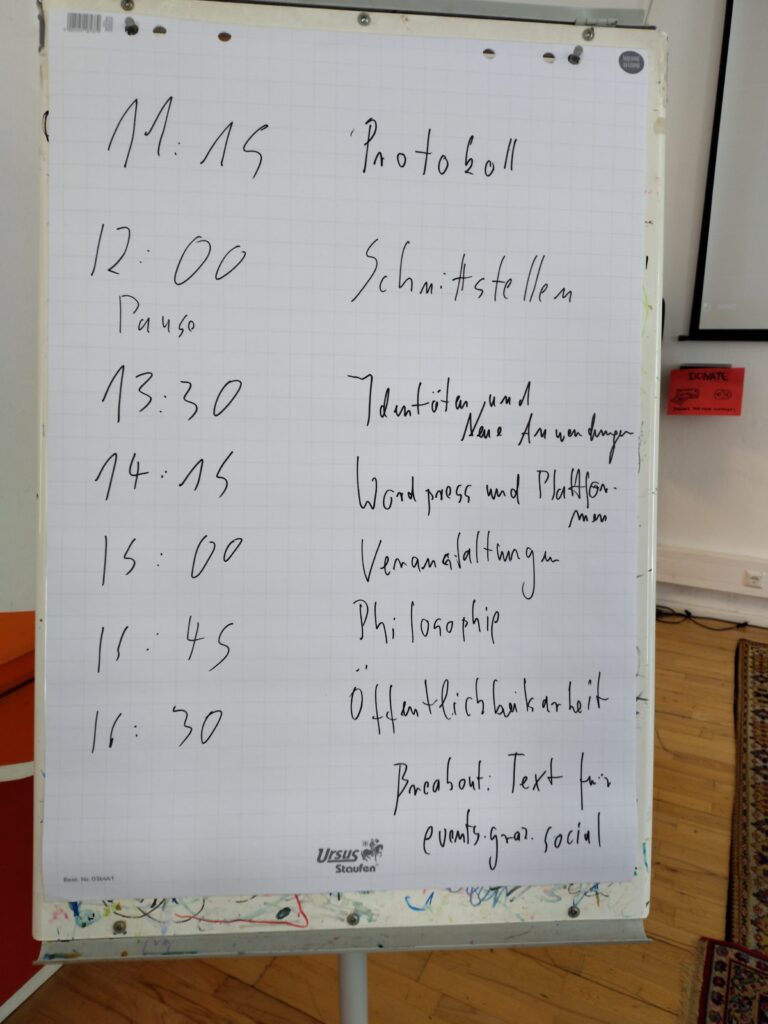 11:15 Protokoll
12:00 Schnittstellen
Pause
13:30 Identitäten und
Neue Anwendungen
14:15 Wordpress und Plattfor-
men
15:00 Veranstaltungen
15:45 Philosophie
16:30 Öffentlichkeitsarbeit
Breakout: Text für
events.graz.social
Ursus
Staufen
DONATE